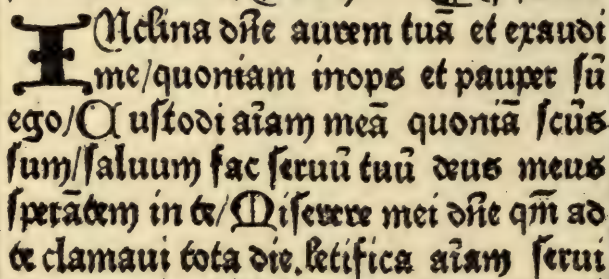 INclina dñe aurem tuã et exaudi
me/quoniam inops et pauper sũ
ego/Custodi aĩam meã quoniã scũs
sum/saluum fac seruũ tuũ deus meus
sperãtem in te/Miserere mei dñe qm̃ ad
te clamaui tota die. letifica aĩam serui